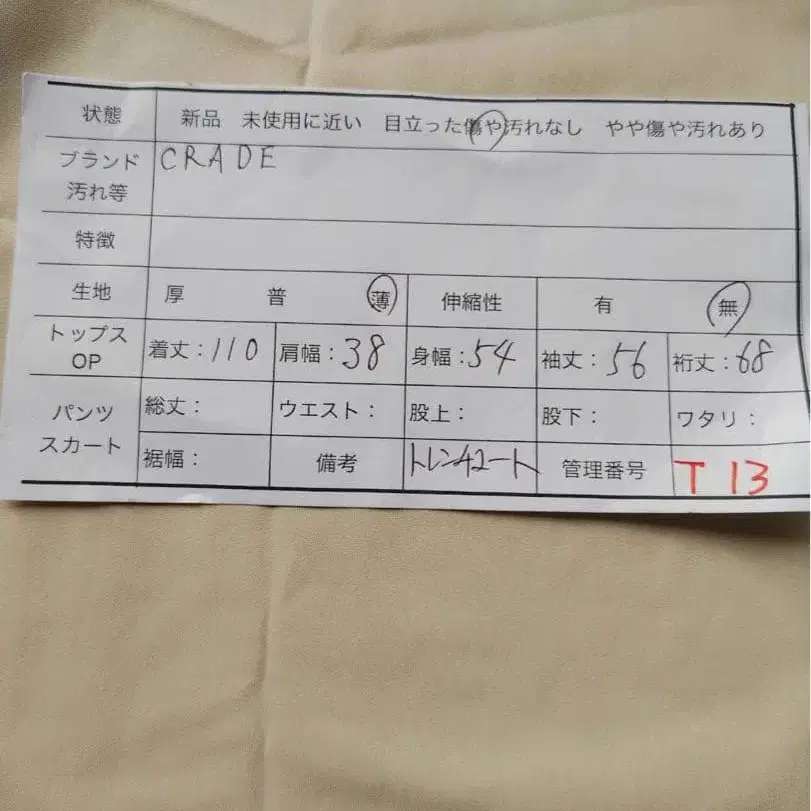 状態 新品 未使用に近い 目立った傷や汚れなし やや傷や汚れあり
ブランド CRADE
汚れ等
特徴
生地 厚 普 薄 伸縮性 有 無
トップス OP 着丈：110 肩幅：38 身幅：54 袖丈：56 裄丈：68
パンツ スカート 総丈： ウエスト： 股上： 股下： ワタリ：
裾幅： 備考 トレンチコート 管理番号 T 13